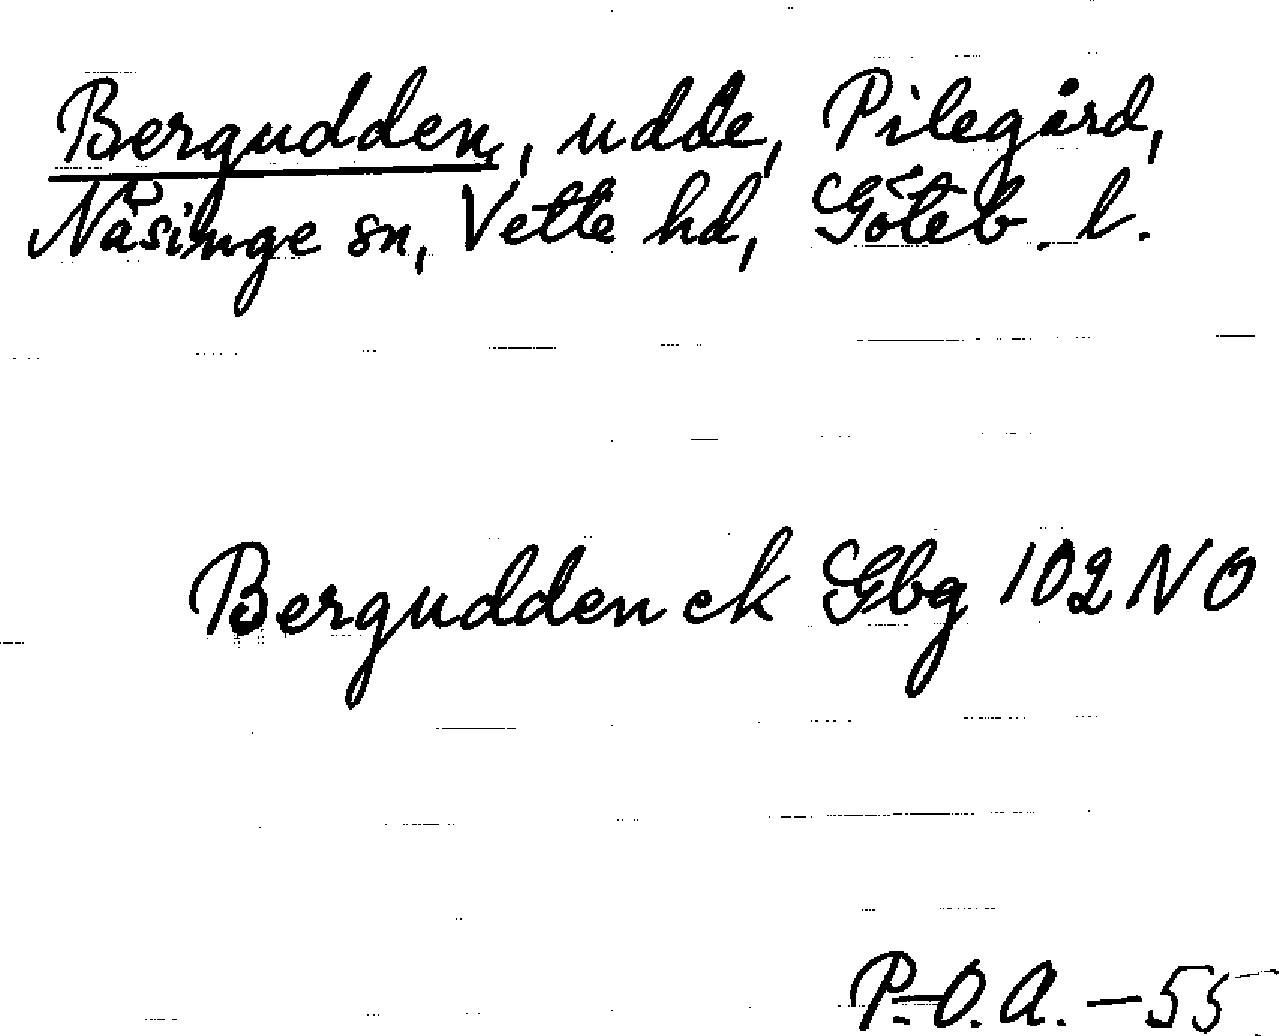 Bergudden, udde, Pilegård,
Näsinge sn, Vette hd, Göteb. l.
Bergudden ek Gbg 102 NO
P.-O.A.-55